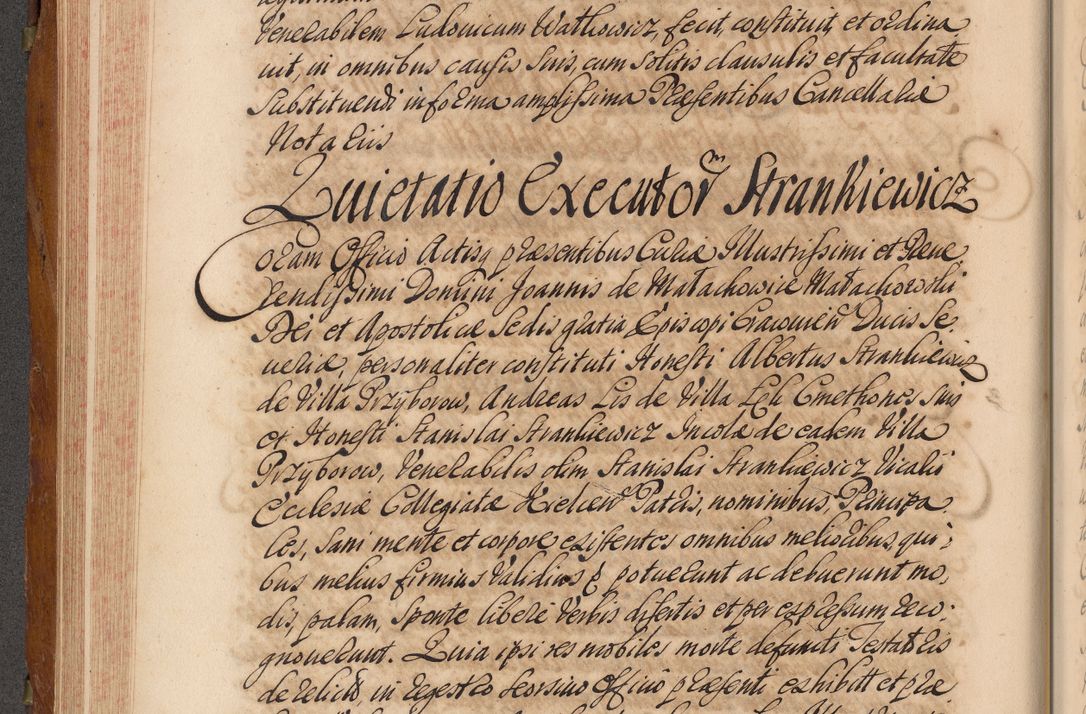 Venerabilem Ludovicum Wathowicz, fecit, constituit, et ordina
vit, in omnibus causis suis, cum solitis clausulis et facultate
Substituendi in forma amplissima Præsentibus Cancellariæ
Notariis
Quietatio Executorm Strankiewicz
Coram Officio Actisq præsentibus Curiæ Illustrissimi et Reve
rendissimi Domini Joannis de Małachowice Małachowski
Dei et Apostolicæ Sedis gratia Episcopi Cracovien Ducis Se,
veriæ, personaliter constituti Honesti Albertus Strankiewicz
de Villa Przyborow, Andreas Lis de Villa Lęk Cmethones suis
et Honesti Stanislai Strankiewicz Incolæ de eadem Villa
Przyborow, Venerabilis olim Stanislai Strankiewicz Vicarii
Ecclesiæ Collegiatæ Kielcen Patris, nominibus, Principa
les, sani mente et corpore existentes omnibus melioribus, qui,
bus melius firmius validius q potuerunt ac debuerunt mo,
dis, palam, sponte libere verbis disertis et per expressum reco,
gnoverunt. Quia ipsi res mobiles morte defuncti Testatoris
derelictas, in regestro seorsivo Officio præsenti exhibitt et præ